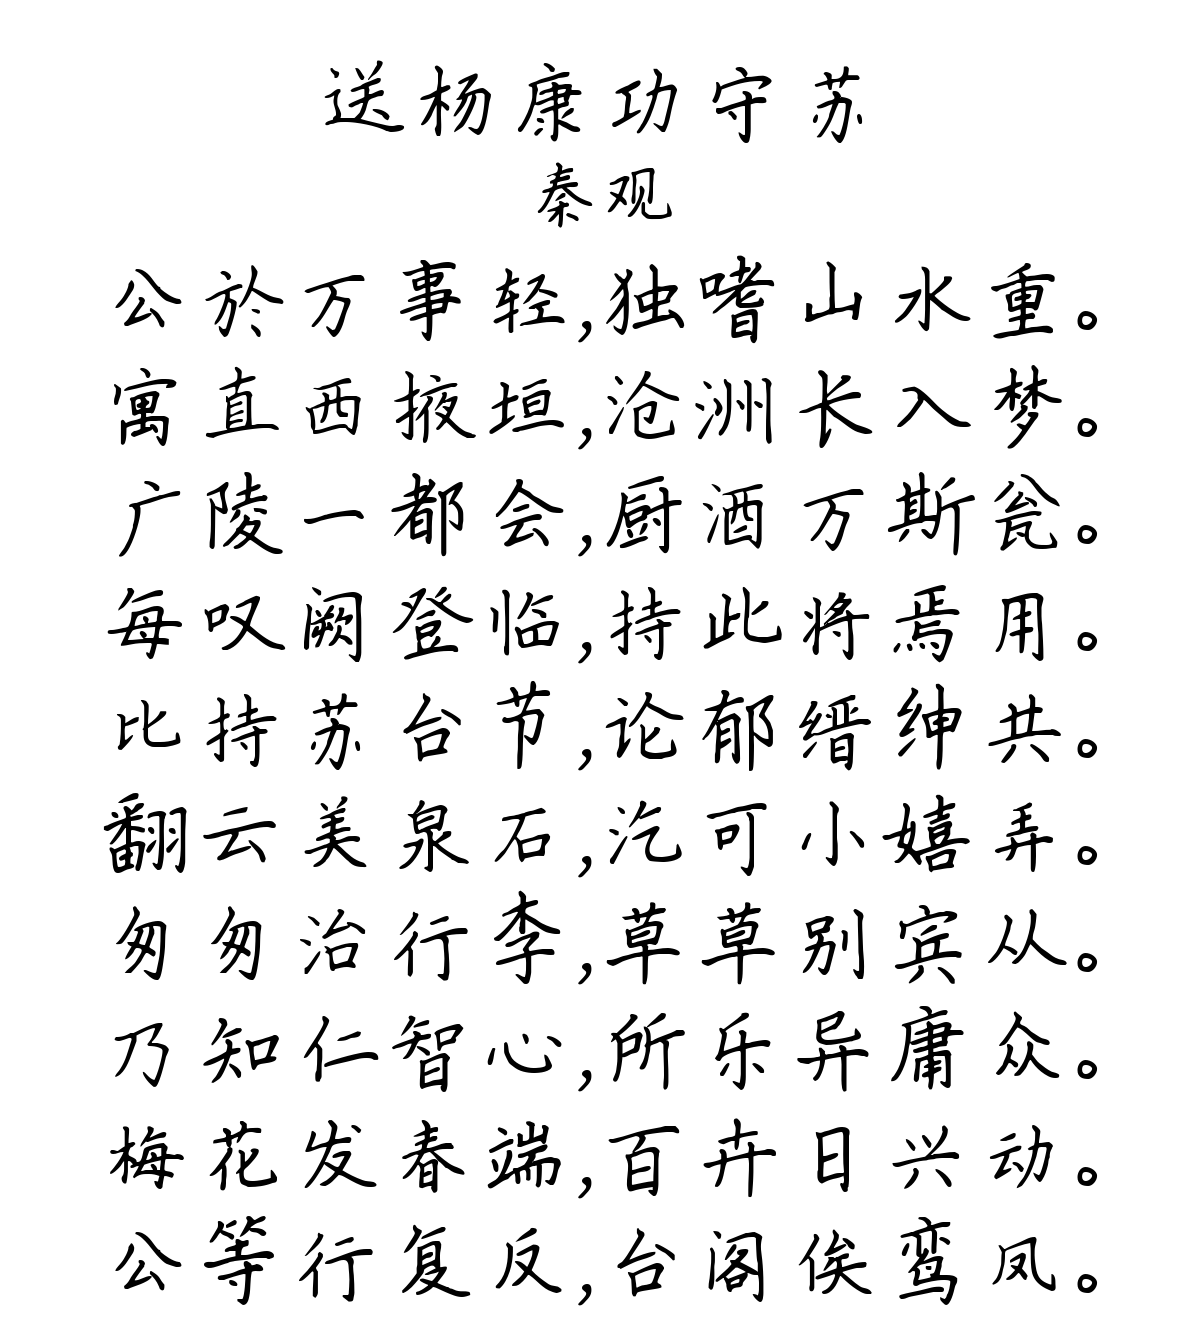 送杨康功守苏
秦观
公於万事轻,独嗜山水重。
寓直西掖垣,沧洲长入梦。
广陵一都会,厨酒万斯瓮。
每叹阙登临,持此将焉用。
比持苏台节,论郁缙绅共。
翻云美泉石,汔可小嬉弄。
匆匆治行李,草草别宾从。
乃知仁智心,所乐异庸众。
梅花发春端,百卉日兴动。
公等行复反,台阁俟鸾凤。